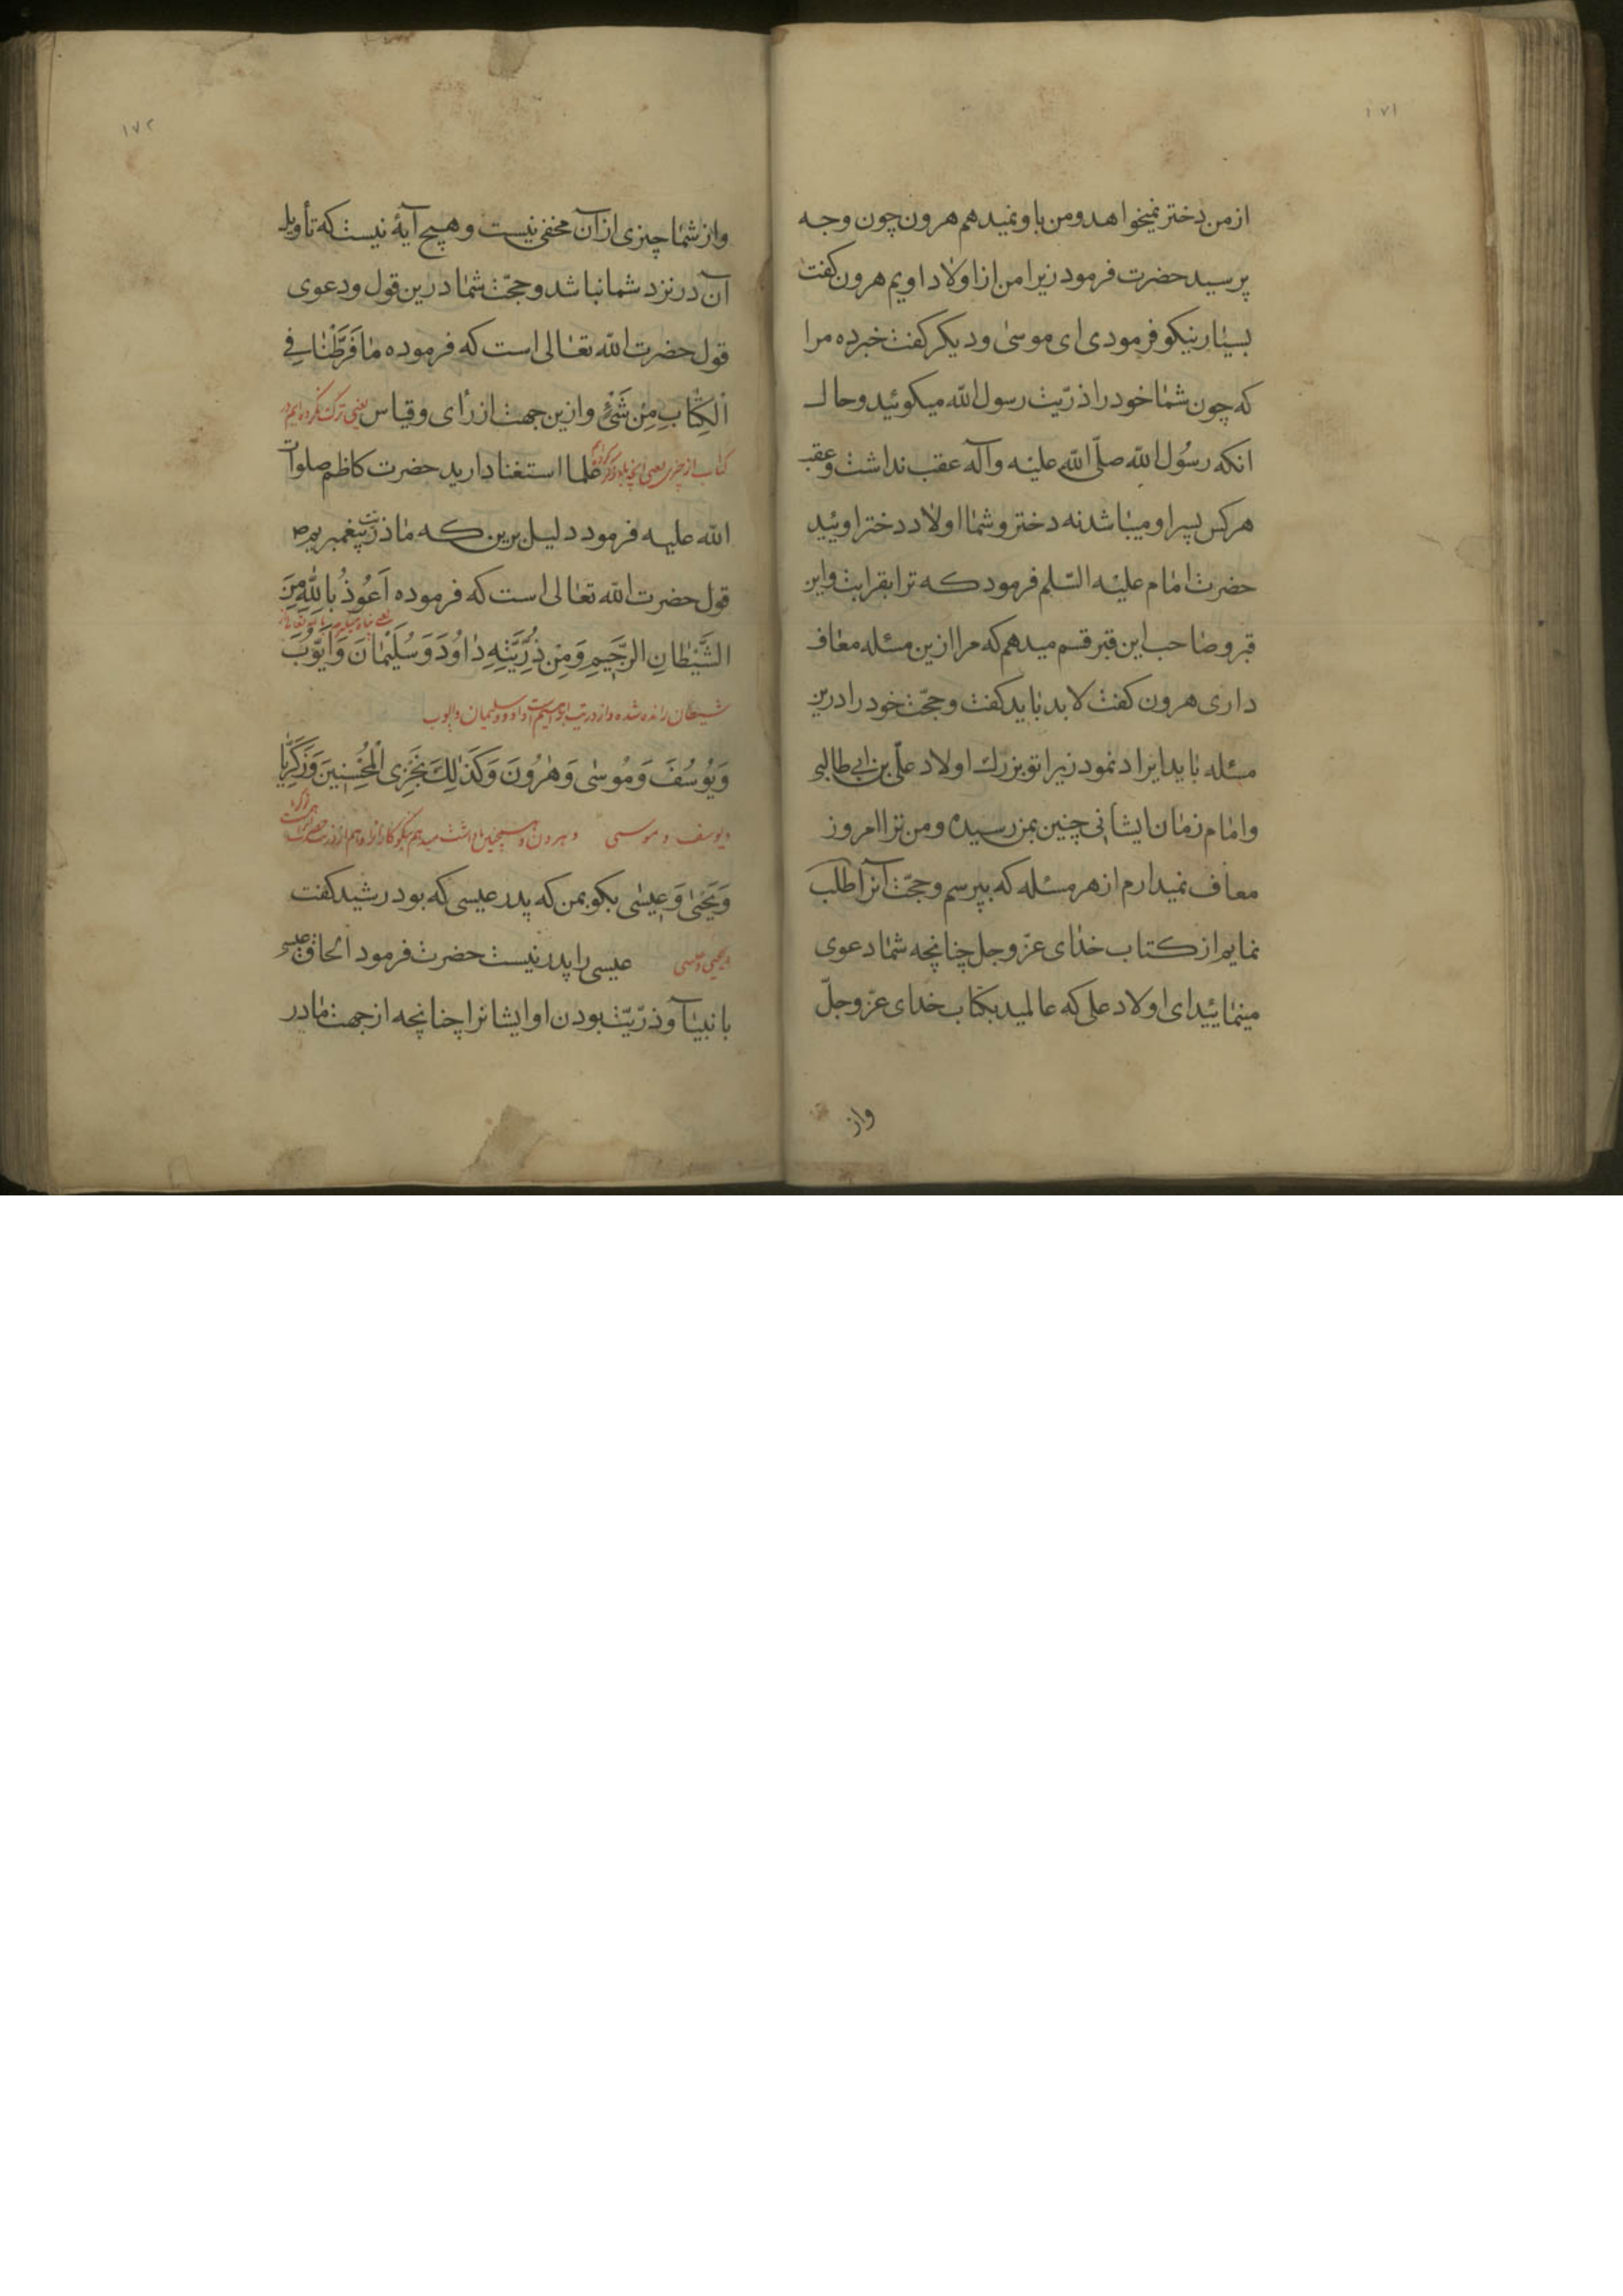 ۱۷۱
از من دختر نمیخواهد و من باو نمیدهم هرون چون وجه
پرسید حضرت فرمود زیرا من از اولاد اویم هرون کفت
بسیار نیکو فرمودی ای موسی و دیکر کفت خبر ده مرا
که چون شما خود را ذرّیت رسول الله میکوئید و حال
انکه رسُول الله صلّی الله علیه و آله عقب نداشت و عقب
هر کس پسر او میباشد نه دختر و شما اولاد دختر اوئید
حضرت امام علیه السّلم فرمود که ترا بقرابت و این
قبر و صاحب این قبر قسم میدهم که مرا ازین مسئله معاف
داری هرون کفت لابد باید کفت و حجّت خود را درین
مسئله باید ایراد نمود زیرا تو بزرك اولاد علّی بن ابی طالبی
و امام زمان ایشانی چنین بمن رسیده و من ترا امروز
معاف نمیدارم از هر مسئله که بپرسم و حجّت آنرا طلب
نمایم از کتاب خدای عزّ و جل چنانچه شما دعوی
مینمائید ای اولاد علی که عالمید بکتاب خدای عزّ و جلّ
واز
۱۷۲
و از شما چیزی از آن مخفی نیست و هیچ آیهٔ نیست که تأویل
آن در نزد شما نباشد و حجّت شما درین قول و دعوی
قول حضرت الله تعالی است که فرموده مٰا فَرَّطْنٰا فِی
الْکِتٰابِ مِنْ شَیْءٍ و ازین جهت از رٔای و قیاس یعنی ترک نکرده‌ایم در
کتاب از چیزی یعنی علما استغنا دارید حضرت کاظم صلوات
الله علیه فرمود دلیل برین که ما ذرّیت پیغمبریم ص
قول حضرت الله تعالی است که فرموده اَعُوذُ بِاللّٰهِ مِنَ
الشَّیْطٰانِ الرَّجٖیمِ وَ مِنْ ذُرِّیَّتِهِ دٰاوُدَ وَ سُلَیْمٰانَ وَ اَیُّوبَ
شیطان رانده شده و از ذریت ابراهیم است داود و سلیمان و ایوب
وَ یُوسُفَ وَ مُوسٰی وَ هٰرُونَ وَ کَذٰلِکَ نَجْزِی الْمُحْسِنٖینَ وَ زَکَرِیّٰا
و یوسف و موسی و هرون و همچنین پاداشت میدهم نیکوکارانرا و هم از ذریت
وَ یَحْیٰی وَ عٖیسٰی بکو بمن که پدر عیسی که بود رشید کفت
و یحیی و عیسی عیسی را پدر نیست حضرت فرمود الحاق عیسی
بانبیآ و ذرّیّت بودن او ایشانرا چنانچه از جهت مادر